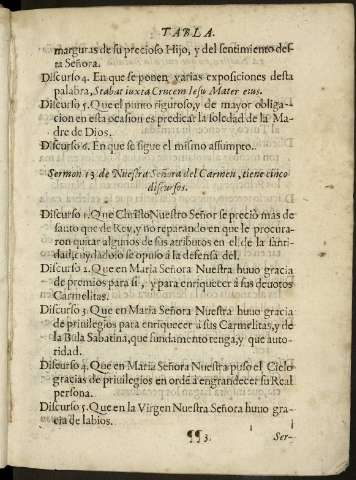 TABLA.
marguras de su precioso Hijo, y del sentimiento des-
ta Señora.
Discurso 4. En que se ponen varias exposiciones desta
palabra, Stabat iuxta Crucem Iesu Mater eius.
Discurso 5. Que el punto riguroso, y de mayor obliga-
cion en esta ocasion es predicar la soledad de la Ma-
dre de Dios.
Discurso 6. En que se sigue el mismo assumpto.
Sermon 13 de Nuestra Señora del Carmen, tiene cinco
discursos.
Discurso 1. Que Christo Nuestro Señor se preciò mas de
santo que de Rey, y no reparando en que le procura-
ron quitar algunos de sus atributos en el de la santi-
dad, cuydadoso se opuso à la defensa del.
Discurso 2. Que en Maria Señora Nuestra huuo gracia
de premios para si, y para enriquecer à sus deuotos
Carmelitas.
Discurso 3. Que en Maria Señora Nuestra huuo gracia
de priuilegios para enriquecer à sus Carmelitas, y de
la Bula Sabatina, que fundamento tenga, y que auto-
ridad.
Discurso 4. Que en Maria Señora Nuestra puso el Cielo
gracias de priuilegios en ordē a engrandecer su Real
persona.
Discurso 5. Que en la Virgen Nuestra Señora huuo gra-
cia de labios.
¶¶ 3. Ser-